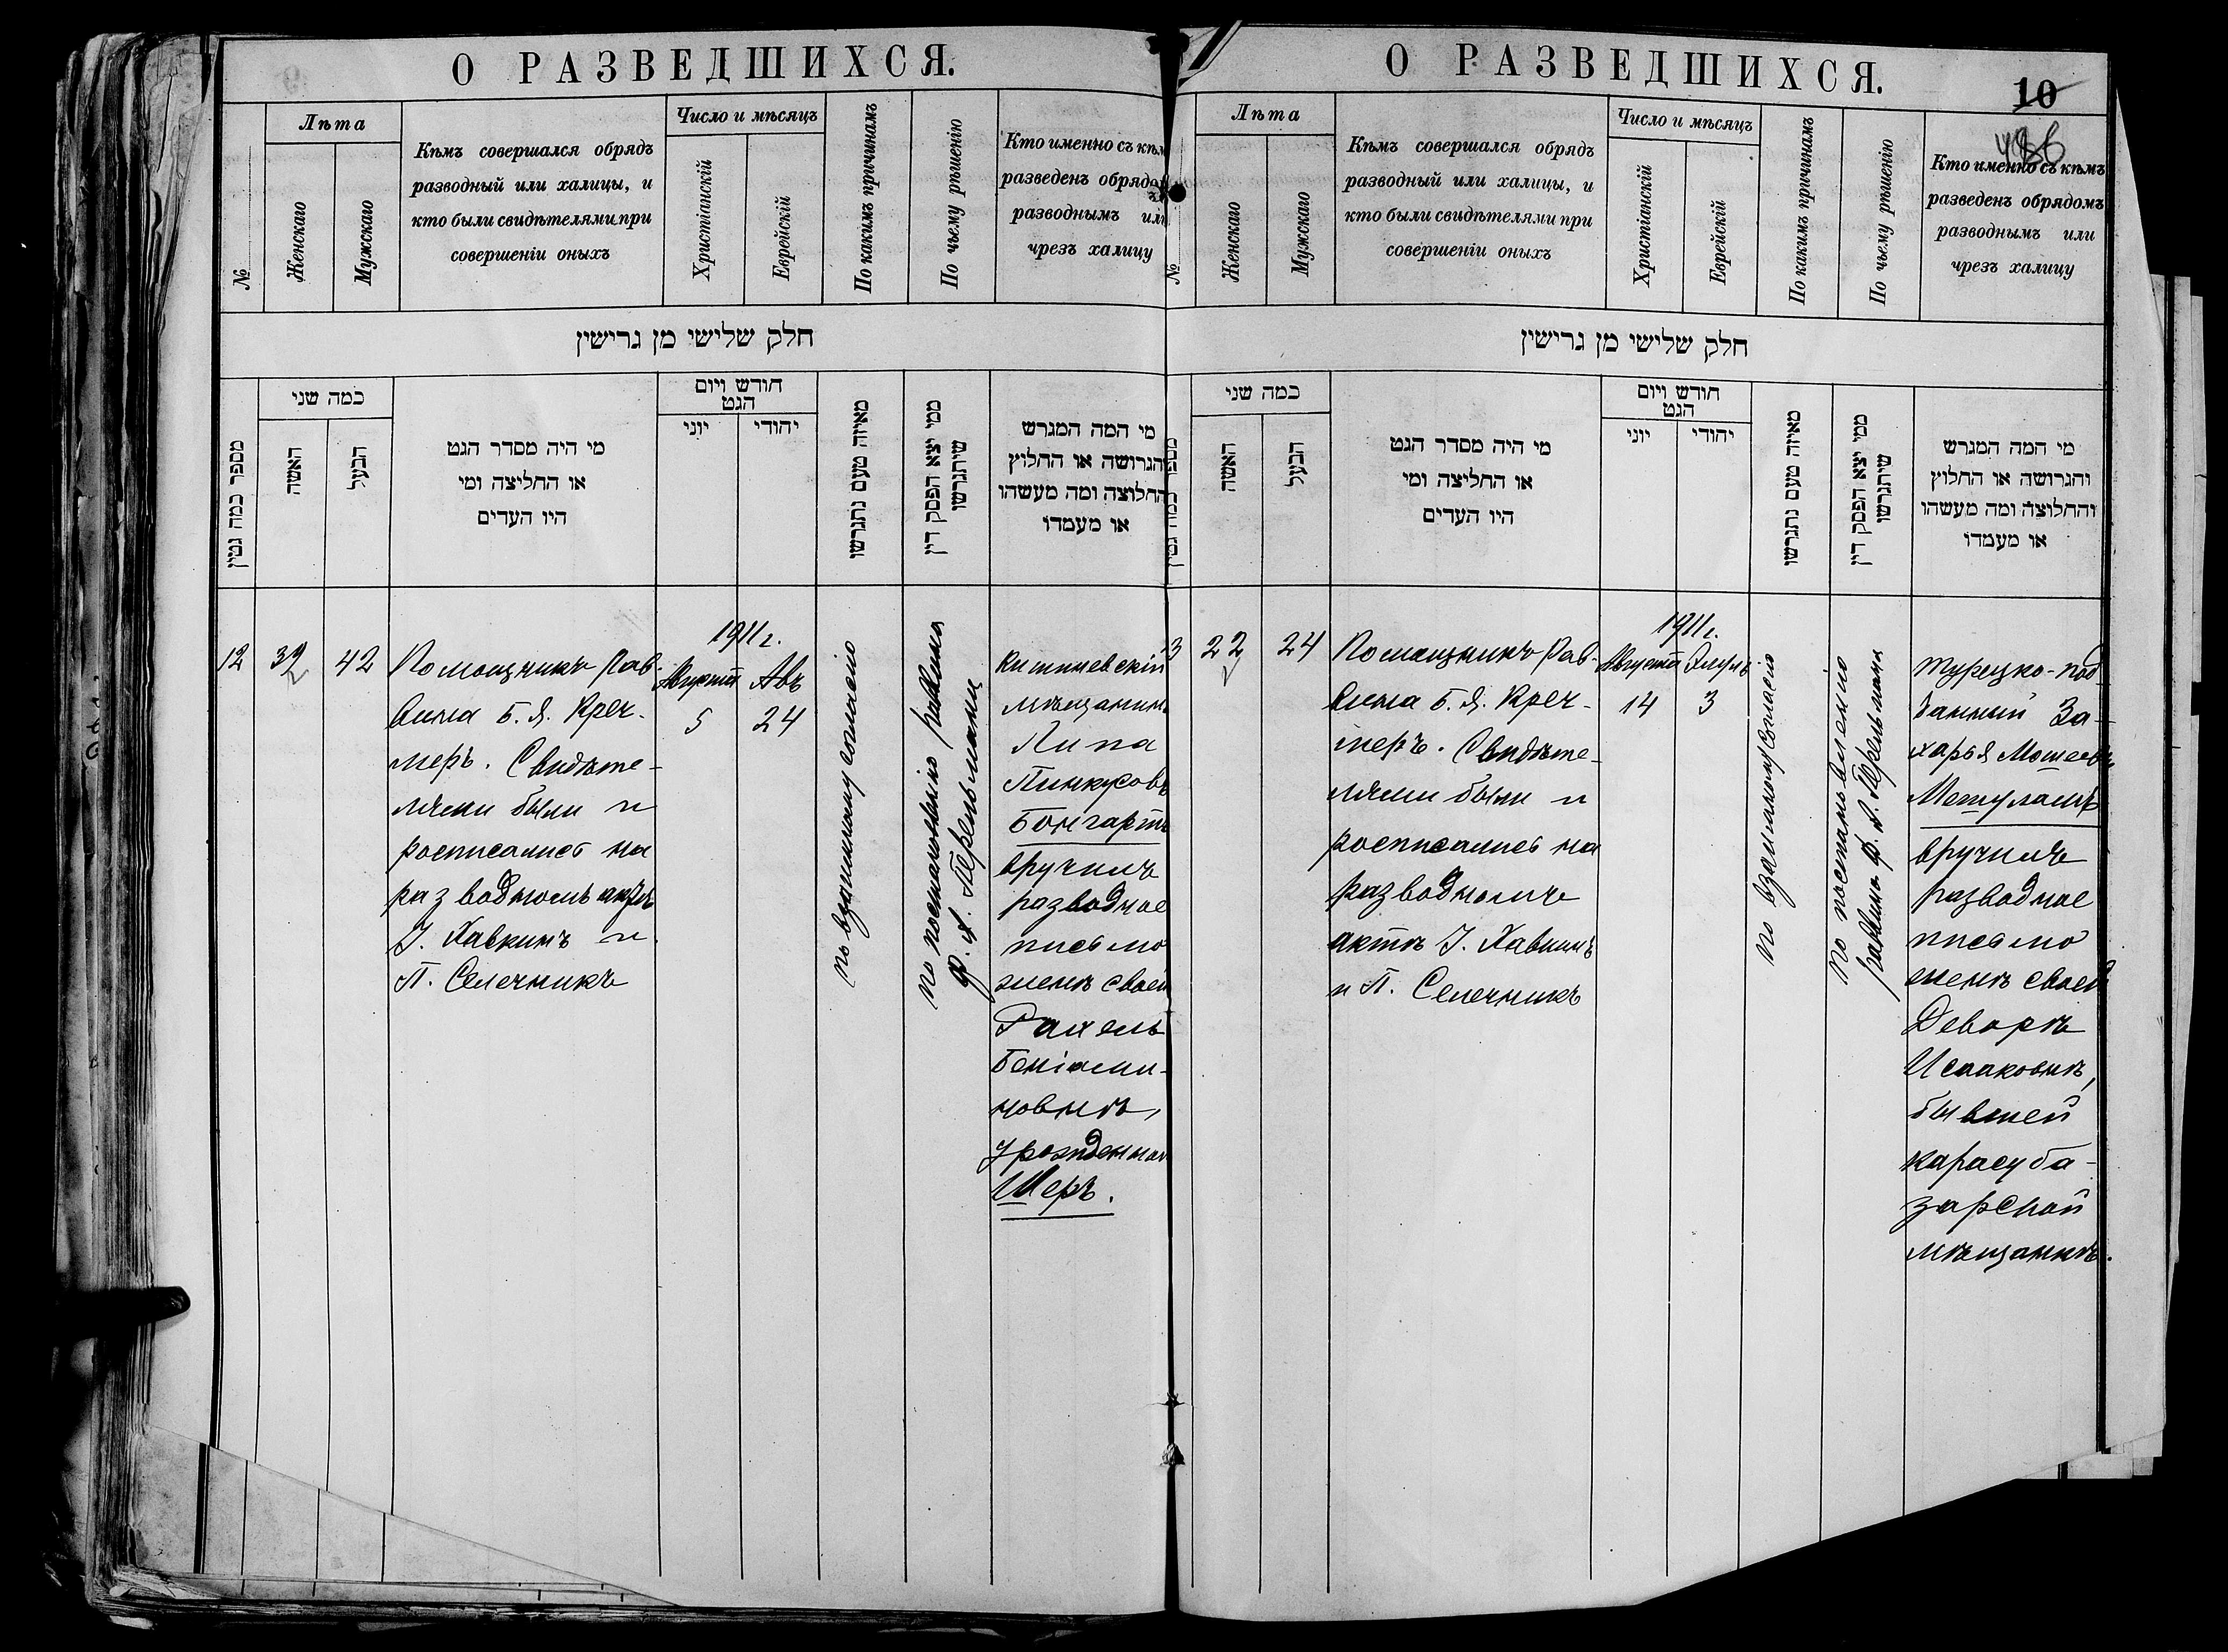 О РАЗВЕДШИХСЯ.
№
Лѣта
Женскаго
Мужскаго
Кѣмъ совершался обрядъ
разводный или халицы, и
кто были свидѣтелями при
совершеніи оныхъ
Число и мѣсяцъ
Христіанскій
Еврейскій
По какимъ причинамъ
По чьему рѣшенію
Кто именно съ кѣм
разведенъ обрядо
разводнымъ или
чрезъ халицу
חלק שלישי מן גרישין
מספר כמה גטין
כמה שני
האשה
הבעל
מי היה מסדר הגט
או החליצה ומי
היו העדים
חודש ויום
הגט
יוני
יהודי
מאיזה טעם נתגרשו
ממי יצא הפסק דין
שיתגרשו
מי המה המגרש
והגרושה או החלוץ
והחלוצה ומה מעשהו
או מעמדו
12
39
42
Помощникъ Рав-
вина Б. Я. Креч-
меръ. Свидѣте-
лями были и
росписались на
разводномъ актѣ
І. Хавкинъ и
П. Селечникъ
1911 г.
Августа Авъ
5 24
по взаимному согласію
по постановленію раввина
Ф. А. Перельмана
Кишиневскій
мѣщанинъ
Липа
Пинкусовъ
Бонгартъ
вручилъ
разводное
письмо
женѣ своей
Рахель
Беніами-
новнѣ,
урожденной
Шеръ.
О РАЗВЕДШИХСЯ.
10
№
Лѣта
Женскаго
Мужскаго
Кѣмъ совершался обрядъ
разводный или халицы, и
кто были свидѣтелями при
совершеніи оныхъ
Число и мѣсяцъ
Христіанскій
Еврейскій
По какимъ причинамъ
По чьему рѣшенію
Кто именно съ кѣмъ
разведенъ обрядомъ
разводнымъ или
чрезъ халицу
חלק שלישי מן גרישין
כמה שני
האשה
הבעל
מי היה מסדר הגט
או החליצה ומי
היו העדים
חודש ויום
הגט
יוני
יהודי
מאיזה טעם נתגרשו
ממי יצא הפסק דין
שיתגרשו
מי המה המגרש
והגרושה או החלוץ
והחלוצה ומה מעשהו
או מעמדו
3
22
24
Помощникъ Рав-
вина Б. Я. Креч-
меръ. Свидѣте-
лями были и
росписались на
разводномъ
актѣ І. Хавкинъ
и П. Селечникъ
1911 г.
Августа Элулъ
14 3
по взаимному согласію
по постановленію
раввина Ф. А. Перельмана
Турецко-под-
данный За-
харья Мошеевъ
Мешуламъ
вручилъ
разводное
письмо
женѣ своей
Деворѣ
Исааковнѣ,
бывшей
карасуба-
зарской
мѣщанкѣ.